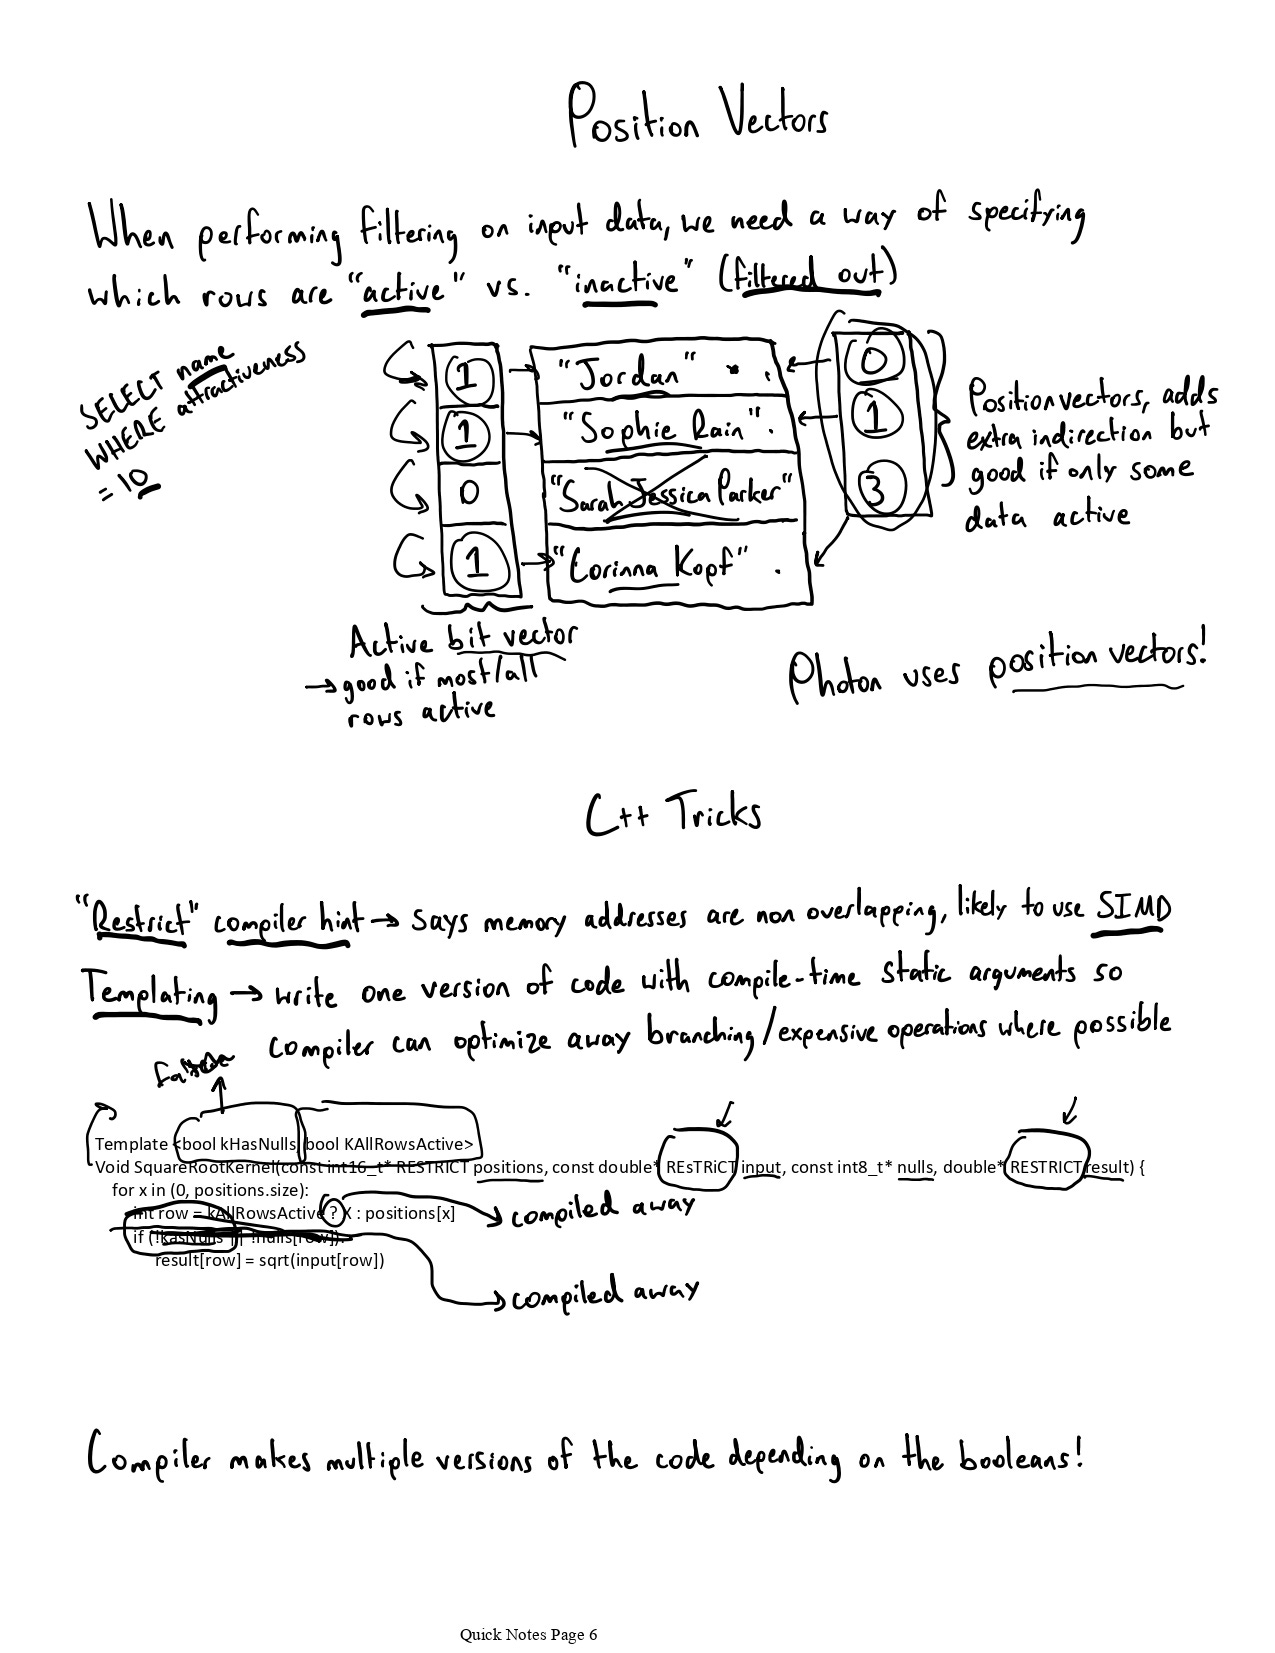 Position Vectors
When performing filtering on input data, we need a way of specifying
which rows are "active" vs. "inactive" (filtered out)
SELECT name
WHERE attractiveness
= 10
1
1
0
1
"Jordan"
"Sophie Rain"
"Sarah Jessica Parker"
"Corinna Kopf"
0
1
3
Position vectors, adds
extra indirection but
good if only some
data active
Active bit vector
→ good if most/all
rows active
Photon uses position vectors!
C++ Tricks
"Restrict" compiler hint → Says memory addresses are non overlapping, likely to use SIMD
Templating → write one version of code with compile-time static arguments so
compiler can optimize away branching/expensive operations where possible
Template <bool kHasNulls, bool KAllRowsActive>
Void SquareRootKernel(const int16_t* RESTRICT positions, const double* REsTRiCT input, const int8_t* nulls, double* RESTRICT result) {
for x in (0, positions.size):
int row = kAllRowsActive ? X : positions[x]
if (!kasNulls || !nulls[row]):
result[row] = sqrt(input[row])
compiled away
compiled away
Compiler makes multiple versions of the code depending on the booleans!
Quick Notes Page 6